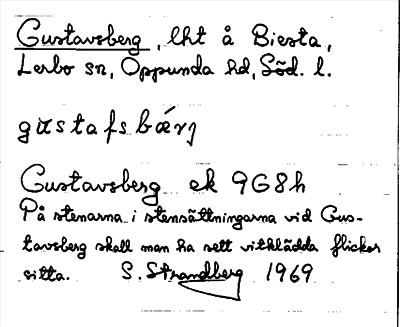 Gustavsberg, lht å Biesta,
Lerbo sn, Oppunda hd, Söd. l.
gustafsbærj
Gustavsberg ek 9G8h
På stenarna i stensättningarna vid Gus-
tavsberg skall man ha sett vitklädda flickor
sitta. S. Strandberg 1969